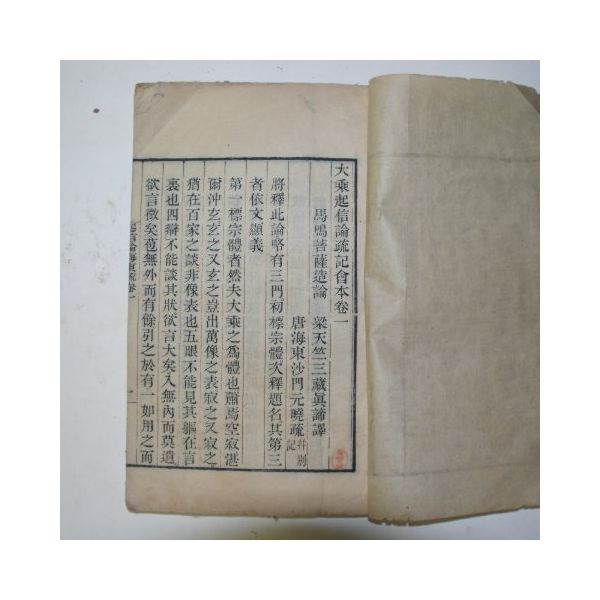 大乘起信論疏記會本卷一
馬鳴菩薩造論 梁天竺三藏眞諦譯
唐海東沙門元曉疏 幷別記
將釋此論略有三門初標宗體次釋題名其第三
者依文顯義
第一標宗體者然夫大乘之爲體也蕭焉空寂湛
爾沖玄玄之又玄豈出萬像之表寂之又寂之
猶在百家之談非像表也五眼不能見其軀在言
裏也四辯不能談其狀欲言大矣入無內而莫遺
欲言微矣苞無外而有餘引之於有一如用之而
起信論海東疏卷一
一